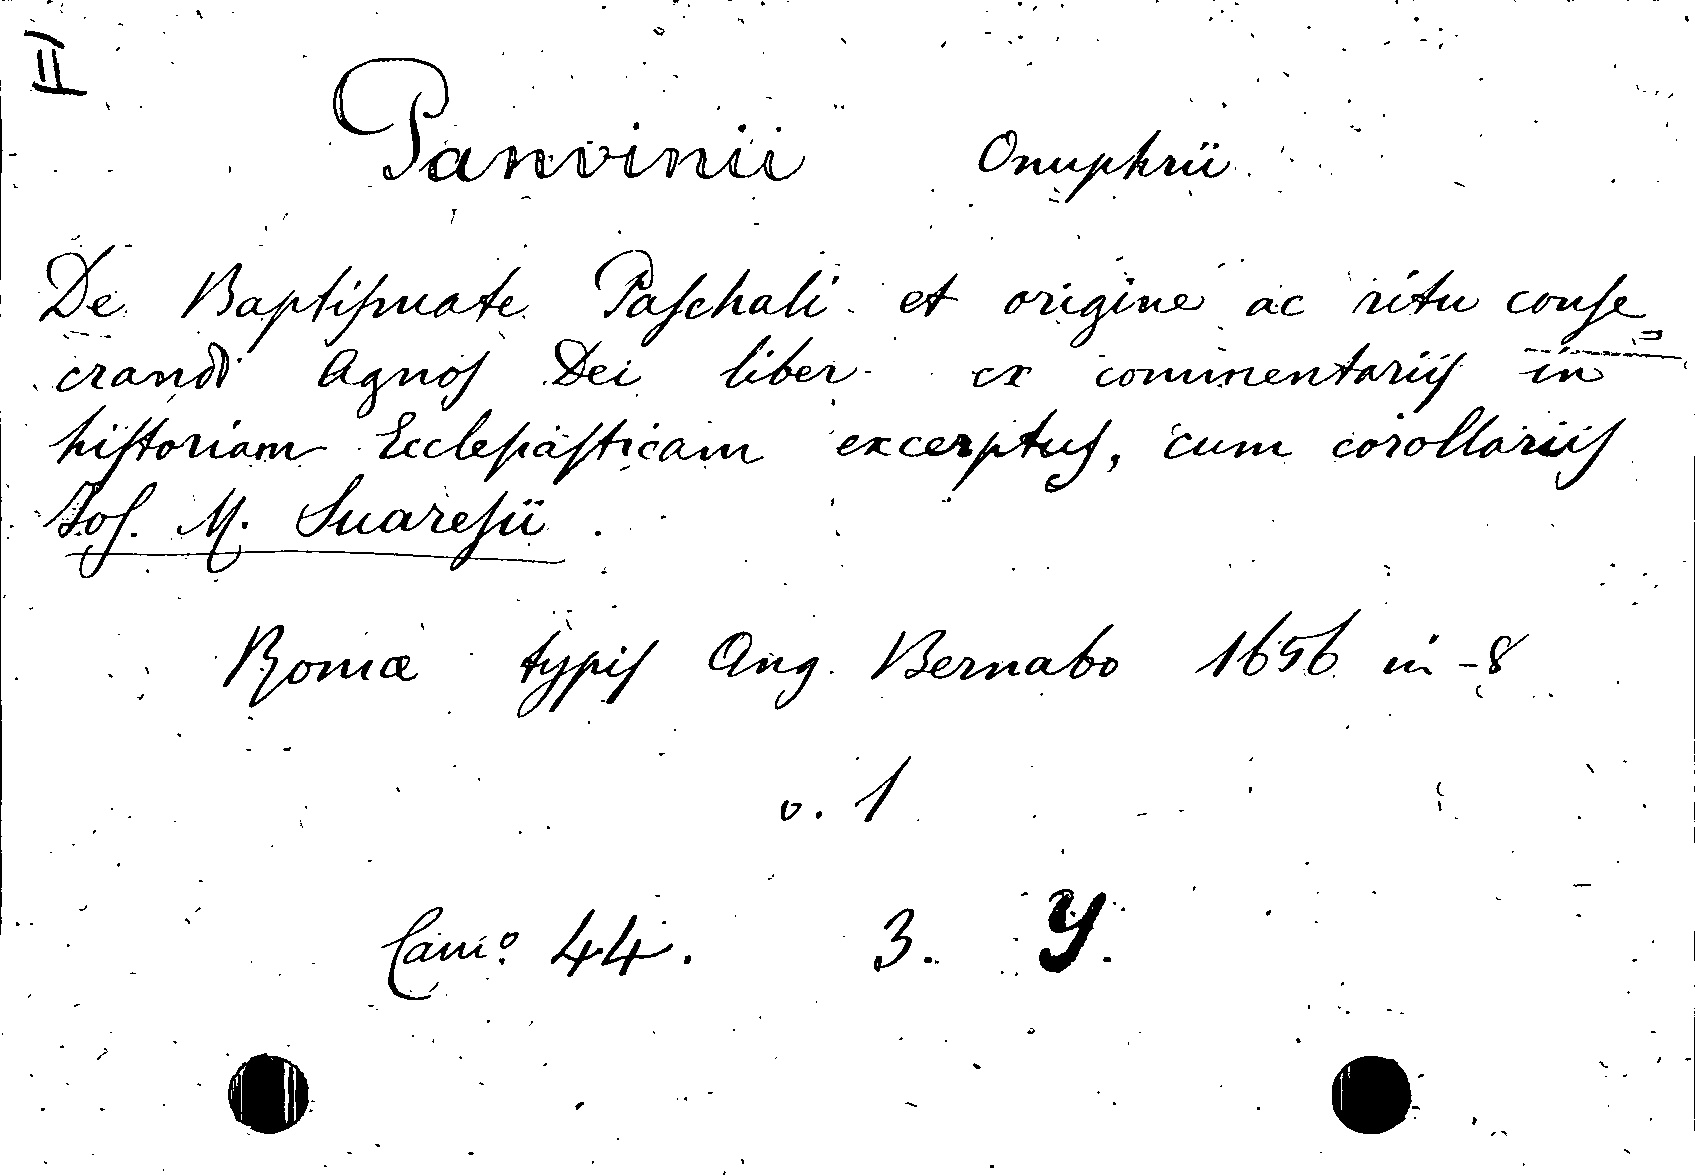 II
Panvinii Onuphrii
De Baptiſmate Paſchali et origine ac ritu conſe=
crandi Agnoſ Dei liber ex commentariiſ in
hiſtoriam Eccleſiaſticam excerptuſ, cum corollariiſ
Joſ. M. Suareſii.
Romæ typiſ Ang. Bernabo 1656 in-8
v. 1
Cam.º 44. 3. Y.